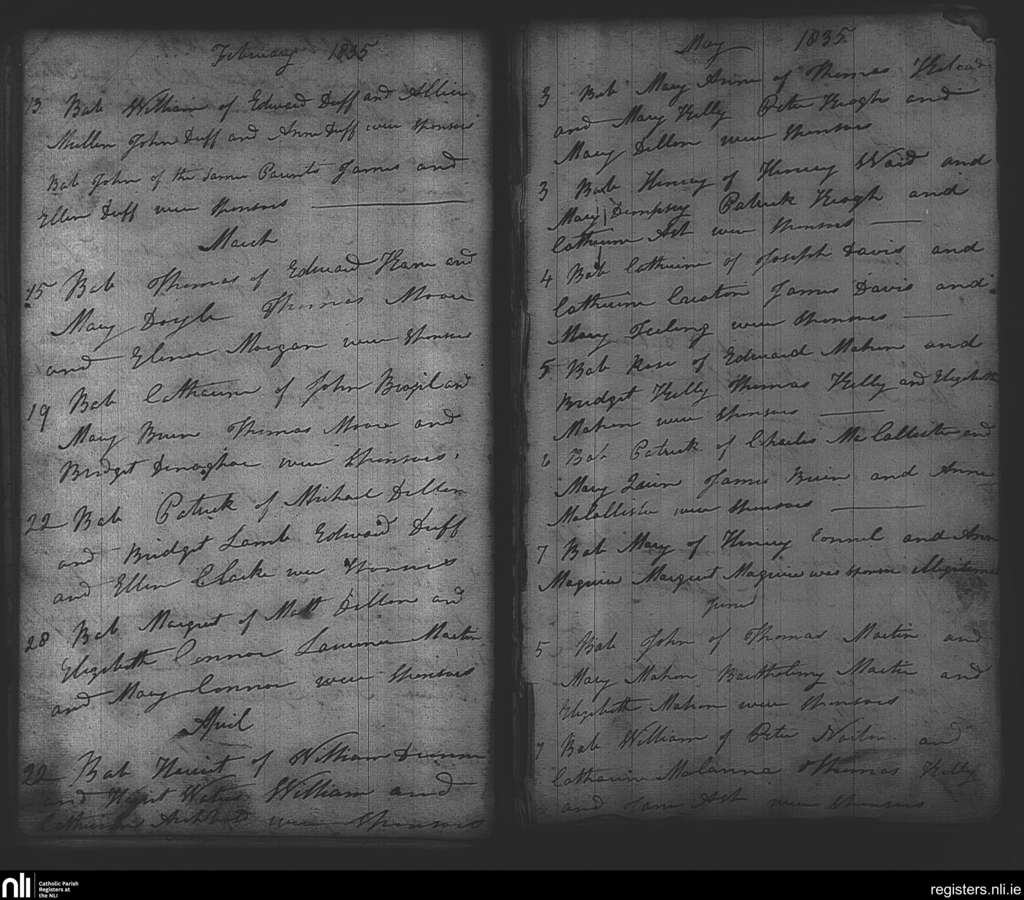 February 1835
13 Bab William of Edward Duff and
Mullen John Duff and Anne Duff were Sponsors
Bab John of the same Parents James and
Ellen Duff were Sponsors
March
15 Bab Thomas of Edward Kane and
Mary Doyle Thomas Moore
and Elinor Morgan were Sponsors
19 Bab Catharine of John Brazil and
Mary Burn Thomas Moore and
Bridget were Sponsors
22 Bab Patrick of Michael Dillon
and Bridget Lamb Edward Duff
and Ellen Clarke were Sponsors
28 Bab Margret of Matt Dillon and
Elizabeth Connor Laurence Martin
and Mary Connor were Sponsors
April
22 Bab Harriet of William
and William and
Catharine were Sponsors
May 1835
3 Bab Mary Anne of Thomas
and Mary Kelly Peter Keogh and
Mary Dillon were Sponsors
3 Bab Henry of Henry Ward and
Mary Dempsey Patrick Keogh and
Catharine Ast were Sponsors
4 Bab Catharine of Joseph Davis and
Catharine James Davis and
Mary Feeling were Sponsors
5 Bab Rose of Edward Mahon and
Bridget Kelly Thomas Kelly and Elizabeth
Mahon were Sponsors
6 Bab Patrick of Charles McCallister and
Mary Quin James Burn and Anne
McCallister were Sponsors
7 Bab Mary of Henry Connel and Ann
Maguire Margret Maguire was sponsor illegitimate
June
5 Bab John of Thomas Martin and
Mary Mahon Bartholomy Martin and
Elizabeth Mahon were Sponsors
7 Bab William of Peter and
Catharine Thomas Kelly
and Jane Ast were Sponsors
nli Catholic Parish
Registers at
the NLI
registers.nli.ie